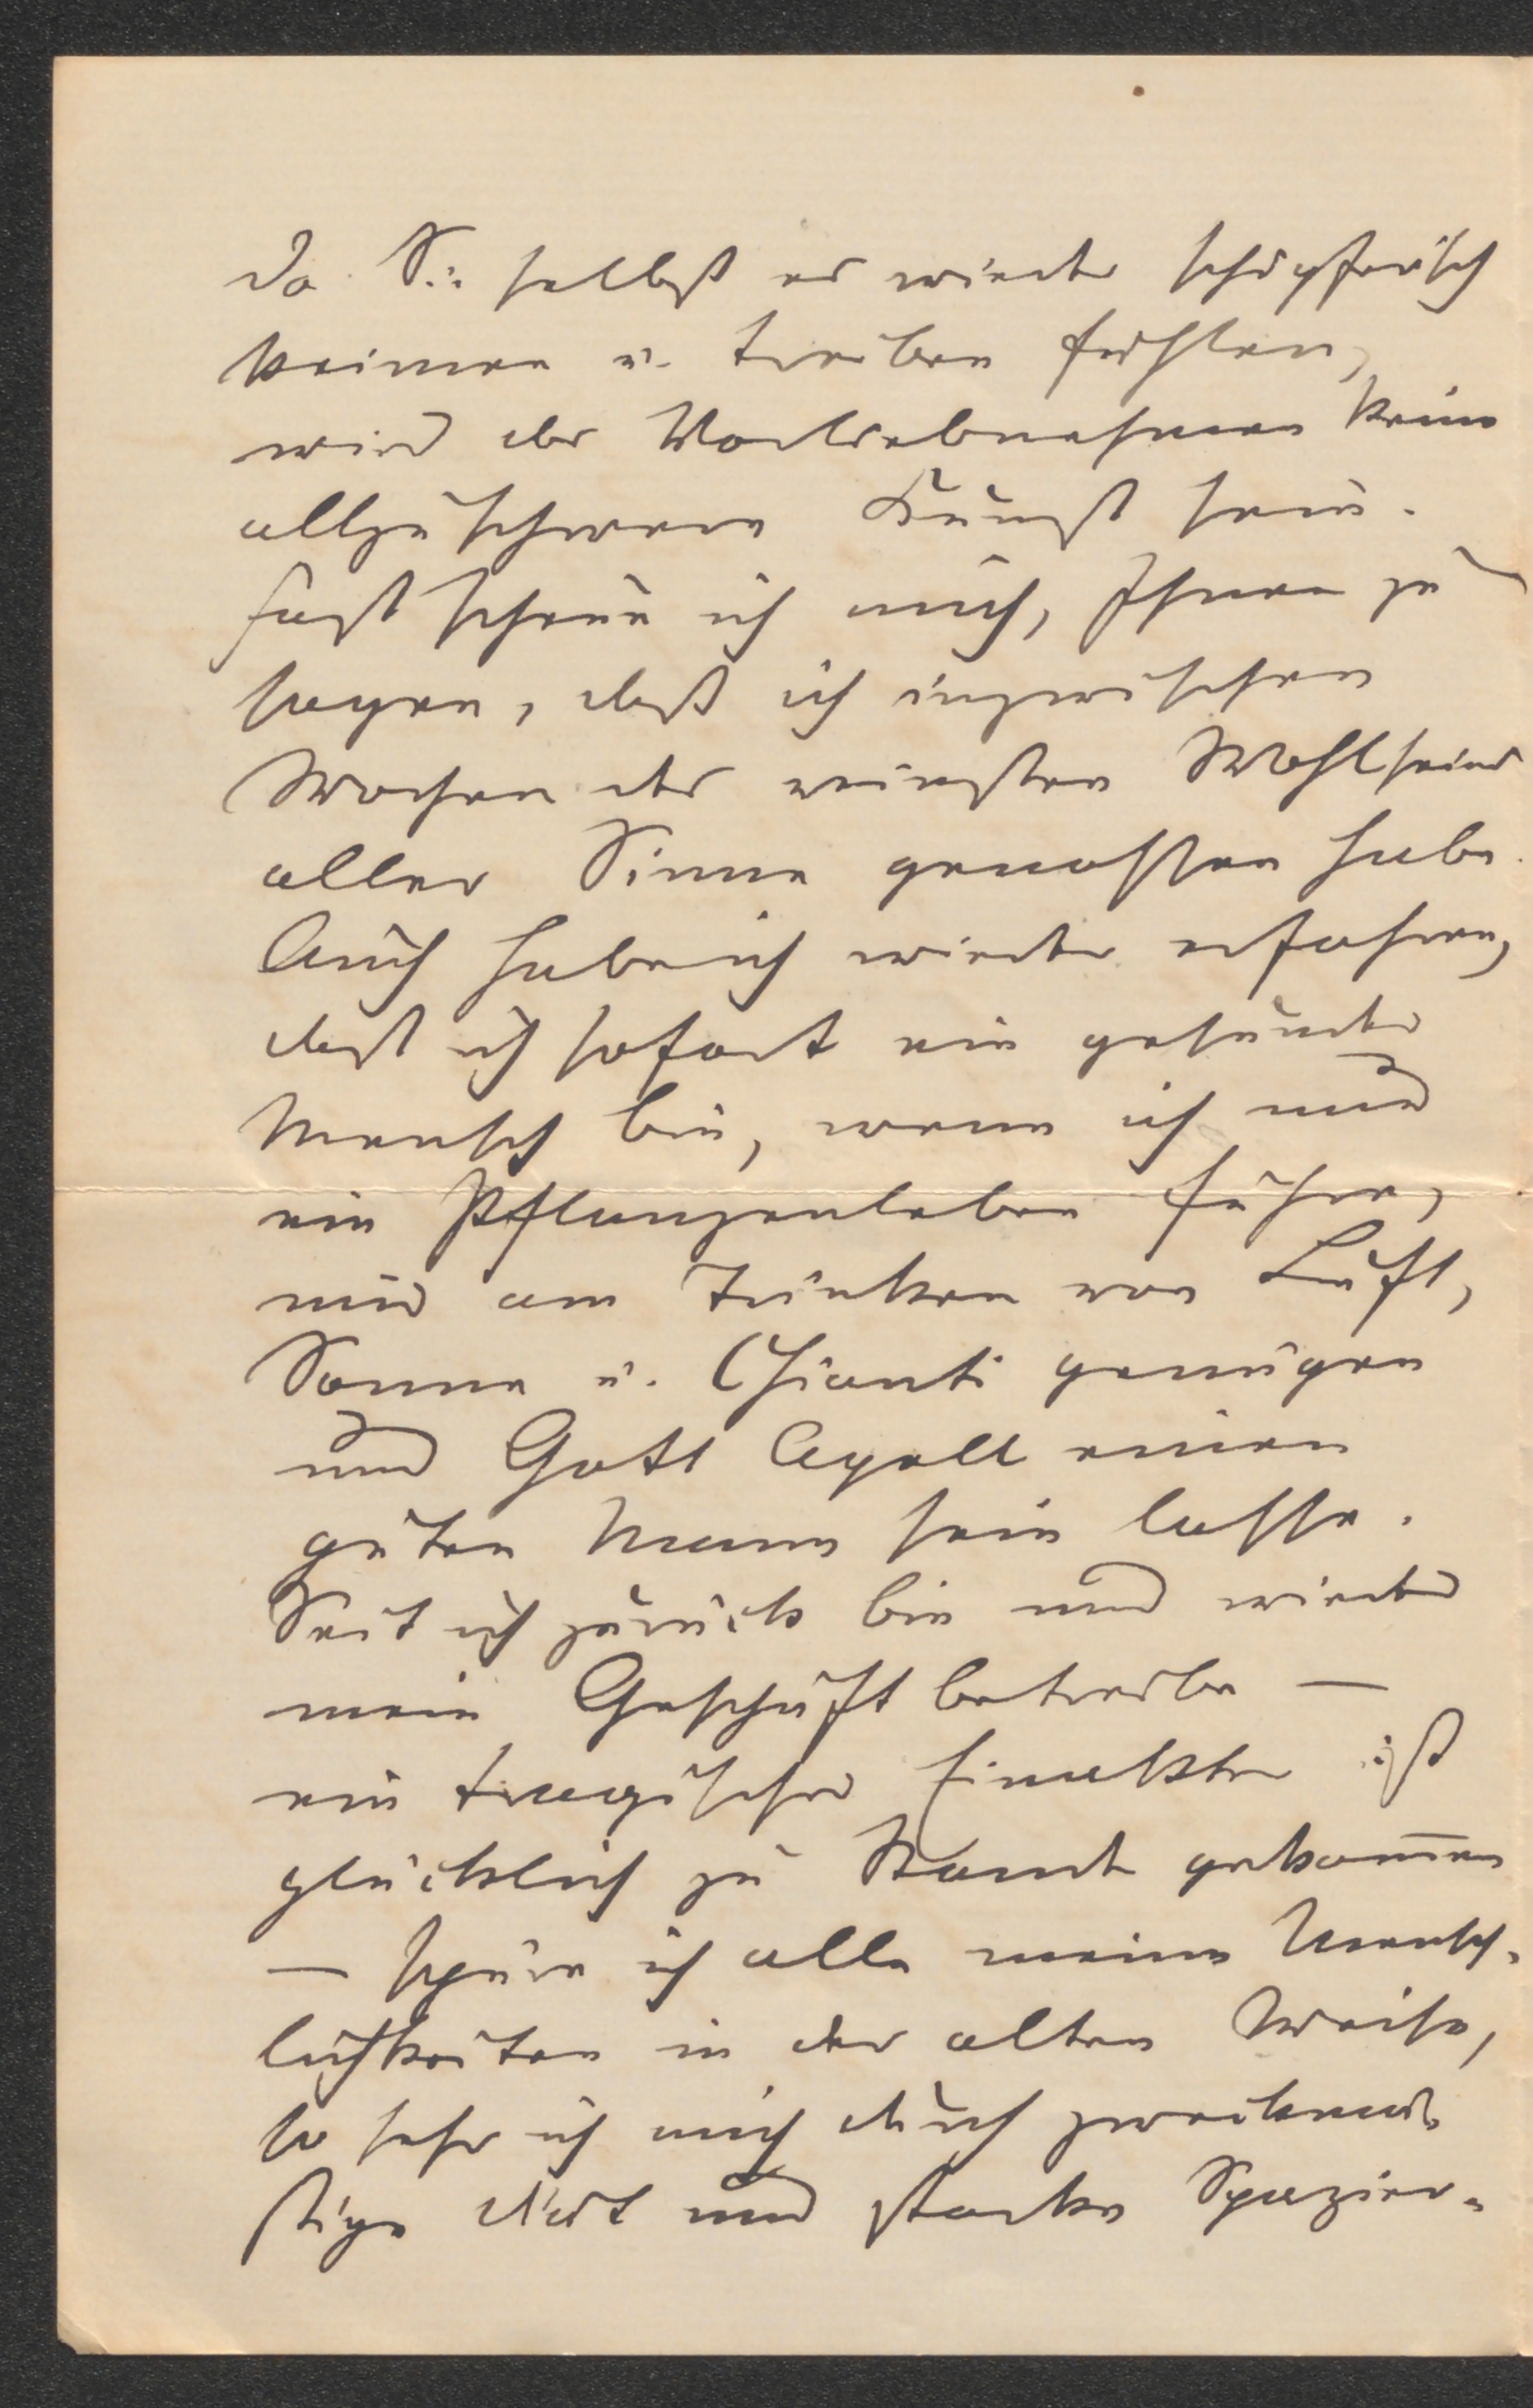 Da Sie selbst es wieder schöpferisch
keimen u. treiben fühlen,
wird das Vorliebnehmen keine
allzuschwere Kunst sein.
Fast scheue ich mich, Ihnen zu
sagen, daß ich inzwischen
Wochen des reinsten Wohlseins
aller Sinne genossen habe.
Auch habe ich wieder erfahren,
daß ich sofort ein gesunder
Mensch bin, wenn ich nur
ein Pflanzenleben führe,
mir am Trinken von Luft,
Sonne u. Chianti genügen
und Gott Apoll einen
guten Mann sein lasse.
Seit ich zurück bin und wieder
mein Geschäft betreibe —
ein tragischer Einakter ist
glücklich zu Stande gekom̄en
— spüre ich alle meine Mensch-
lichkeiten in der alten Weise,
so sehr ich mich durch zweckmä-
ßige Diät und starke Spazier-